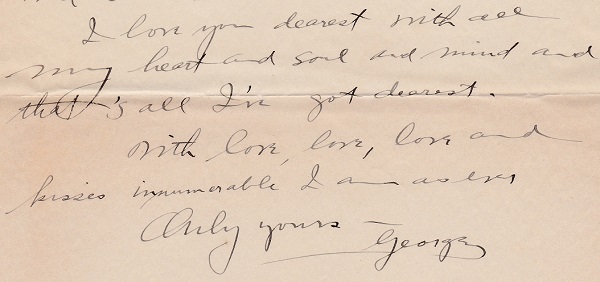 I love you dearest with all
my heart and soul and mind and
that's all I've got dearest.
With love, love, love and
kisses innumerable I am as ever
Only yours —
George